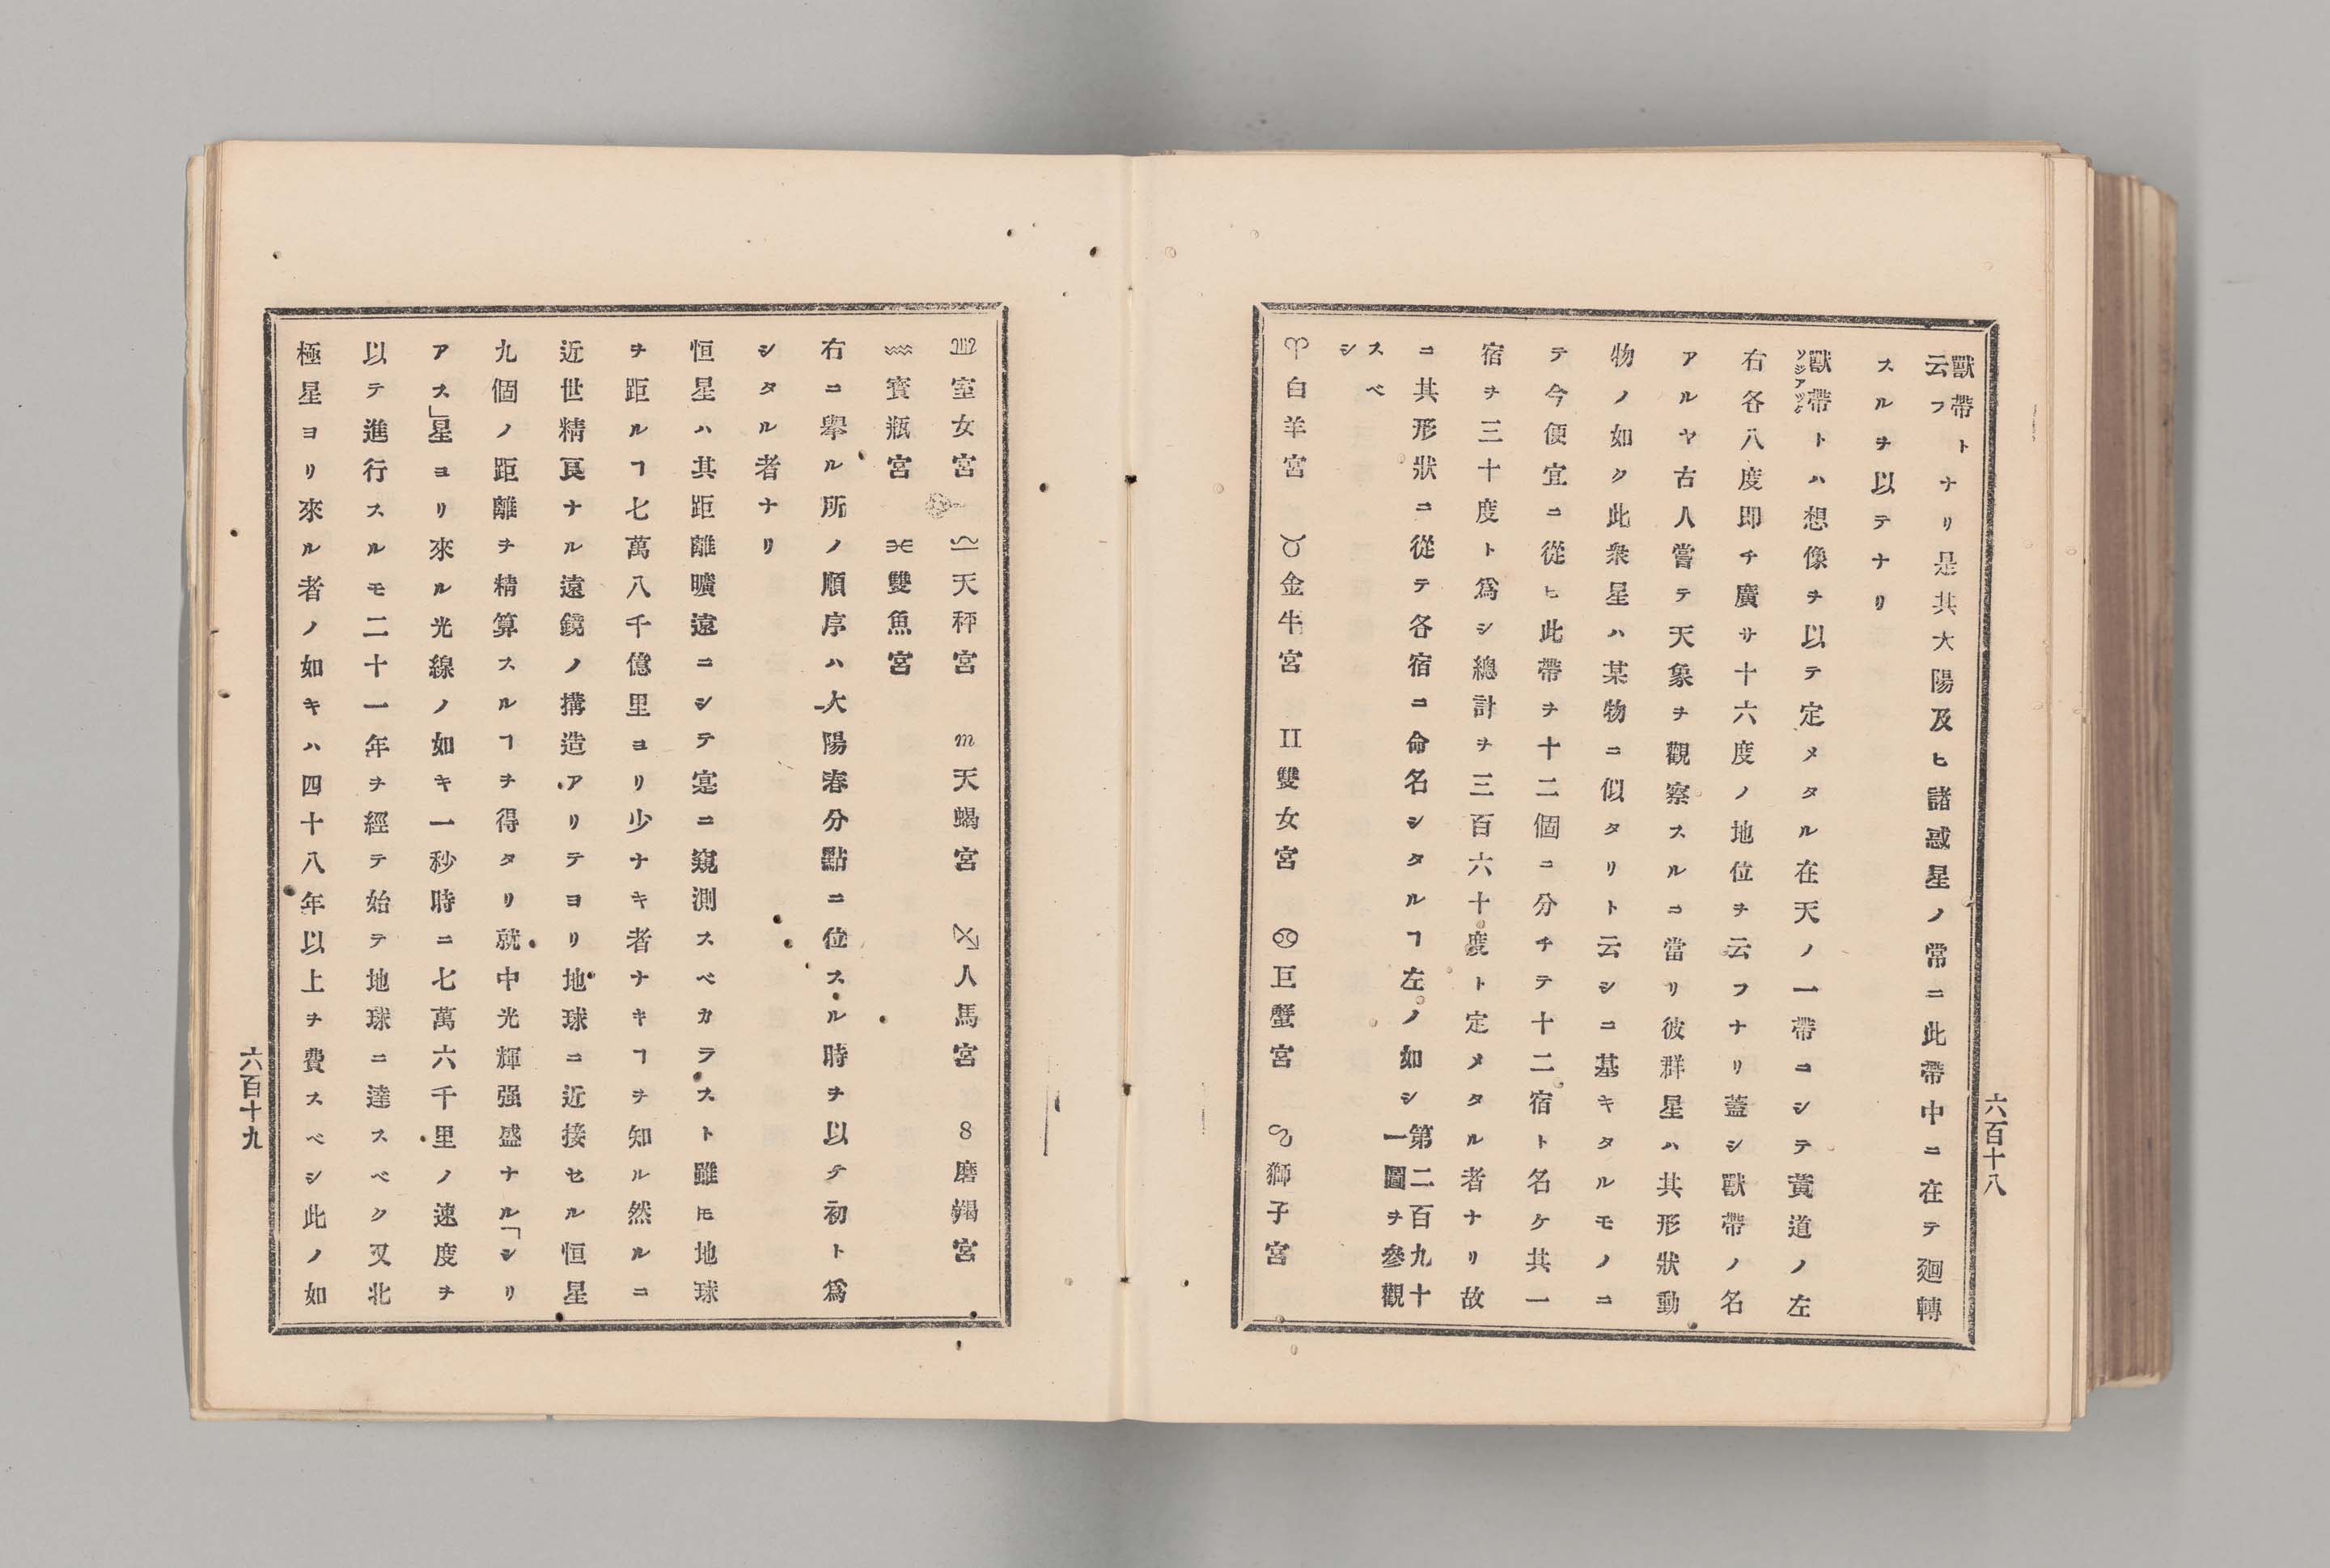 獸帶ト云フナリ是其大陽及ヒ諸惑星ノ常ニ此帶中ニ在テ廻轉
スルヲ以テナリ
獸帶トハ想像ヲ以テ定メタル在天ノ一帶ニシテ黃道ノ左
右各八度即チ廣サ十六度ノ地位ヲ云フナリ蓋シ獸帶ノ名
アルヤ古人嘗テ天象ヲ觀察スルニ當リ彼群星ハ其形狀動
物ノ如ク此衆星ハ某物ニ似タリト云シニ基キタルモノニ
テ今便宜ニ從ヒ此帶ヲ十二個ニ分チテ十二宿ト名ケ其一
宿ヲ三十度ト爲シ總計ヲ三百六十度ト定メタル者ナリ故
ニ其形狀ニ從テ各宿ニ命名シタルヿ左ノ如シ第二百九十一圖ヲ參觀
スベシ
♈白羊宮 ♉金牛宮 ♊雙女宮 ♋巨蟹宮 ♌獅子宮
六百十八
♍室女宮 ♎天秤宮 ♏天蝎宮 ♐人馬宮 ♑磨羯宮
♒寳瓶宮 ♓雙魚宮
右ニ擧ル所ノ順序ハ大陽春分點ニ位スル時ヲ以テ初ト爲
シタル者ナリ
恒星ハ其距離曠遠ニシテ寔ニ窺測スベカラスト雖𪜈地球
ヲ距ルヿ七萬八千億里ヨリ少ナキ者ナキヿヲ知ル然ルニ
近世精良ナル遠鏡ノ搆造アリテヨリ地球ニ近接セル恒星
九個ノ距離ヲ精算スルヿヲ得タリ就中光輝强盛ナル「シリ
アス」星ヨリ來ル光線ノ如キ一秒時ニ七萬六千里ノ速度ヲ
以テ進行スルモ二十一年ヲ經テ始テ地球ニ達スベク又北
極星ヨリ來ル者ノ如キハ四十八年以上ヲ費スベシ此ノ如
六百十九